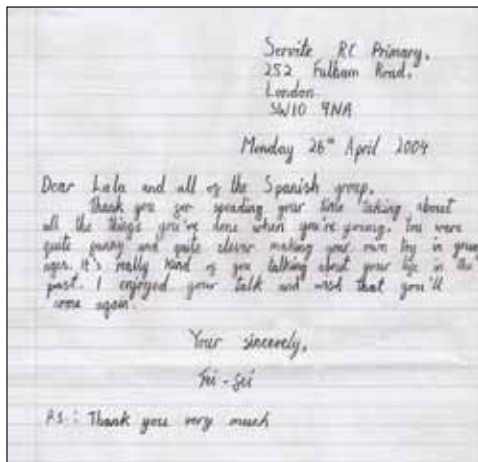 Servite RC Primary,
252 Fulham Road,
London
SW10 9NA
Monday 26th April 2004
Dear Lala and all of the Spanish group,
Thank you for spending your time talking about
all the things you've done when you're young. You were
quite funny and quite clever making your own toy in young
ages. It's really kind of you talking about your life in the
past. I enjoyed your talk and wish that you'll
come again.
Your sincerely,
P.S.: Thank you very much